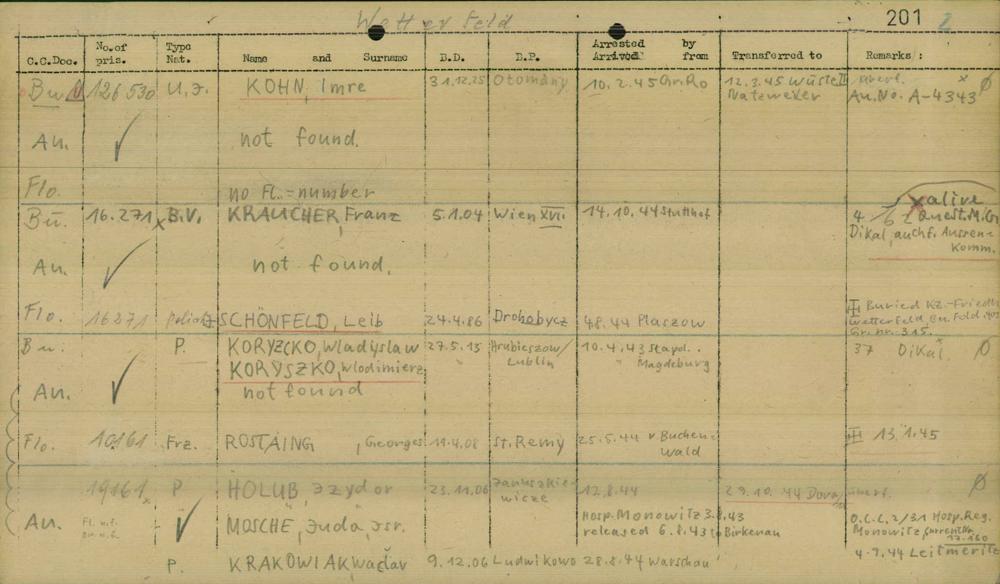 Wetterfeld
201 2
C.C.Doc. No. of pris. Type Nat. Name and Surname B.D. B.P. Arrested Arrived by from Transferred to Remarks :
Bu 126 530 U, J. KOHN, Imre 31.12.25 Otomány 10. 2. 45 Gr. Ro 12. 3. 45 Natzweiler x Ø
Au. No. A-4343
Au. not found.
Flo. no Fl.=number
Bu. 16.271 x B.V. KRAUCHER, Franz 5.1.04 Wien XVII. 14. 10. 44 Stutthof x alive
Dikal, auch f. Aussen=
Komm.
Au. not found.
Flo. 16271 SCHÖNFELD, Leib 24.4.86 Drohobycz 4.8.44 Plaszow Buried KZ.-Friedh.
Wetterfeld,
Gr. nr. 315.
Bu. P. KORYZCKO, Wladyslaw 27.5.13 Hrubieszow/ 10. 4. 43 Stapol. 37 Dikal. Ø
KORYSZKO, Wlodimierz " Lublin Magdeburg
Au. not found
Flo. 10161 Frz. ROSTAING, Georges 11.4.08 St. Remy 25. 5. 44 v. Buchen= 13. 1. 45
wald
19161 x P. HOLUB, Izydor 23.11.06 Januszkie= 12. 8. 44 29. 10. 44 Dora Ø
wicze
Au. MOSCHE, Juda, Isr. Hosp. Monowitz 3.8.43 O.C.C. 2/31 Hosp. Reg.
released 6. 8. 43 to Birkenau Monowitz
P. KRAKOWIAK, Wacław 9. 12. 06 Ludwikowo 28. 8. 44 Warschau 4. 9. 44 Leitmeritz